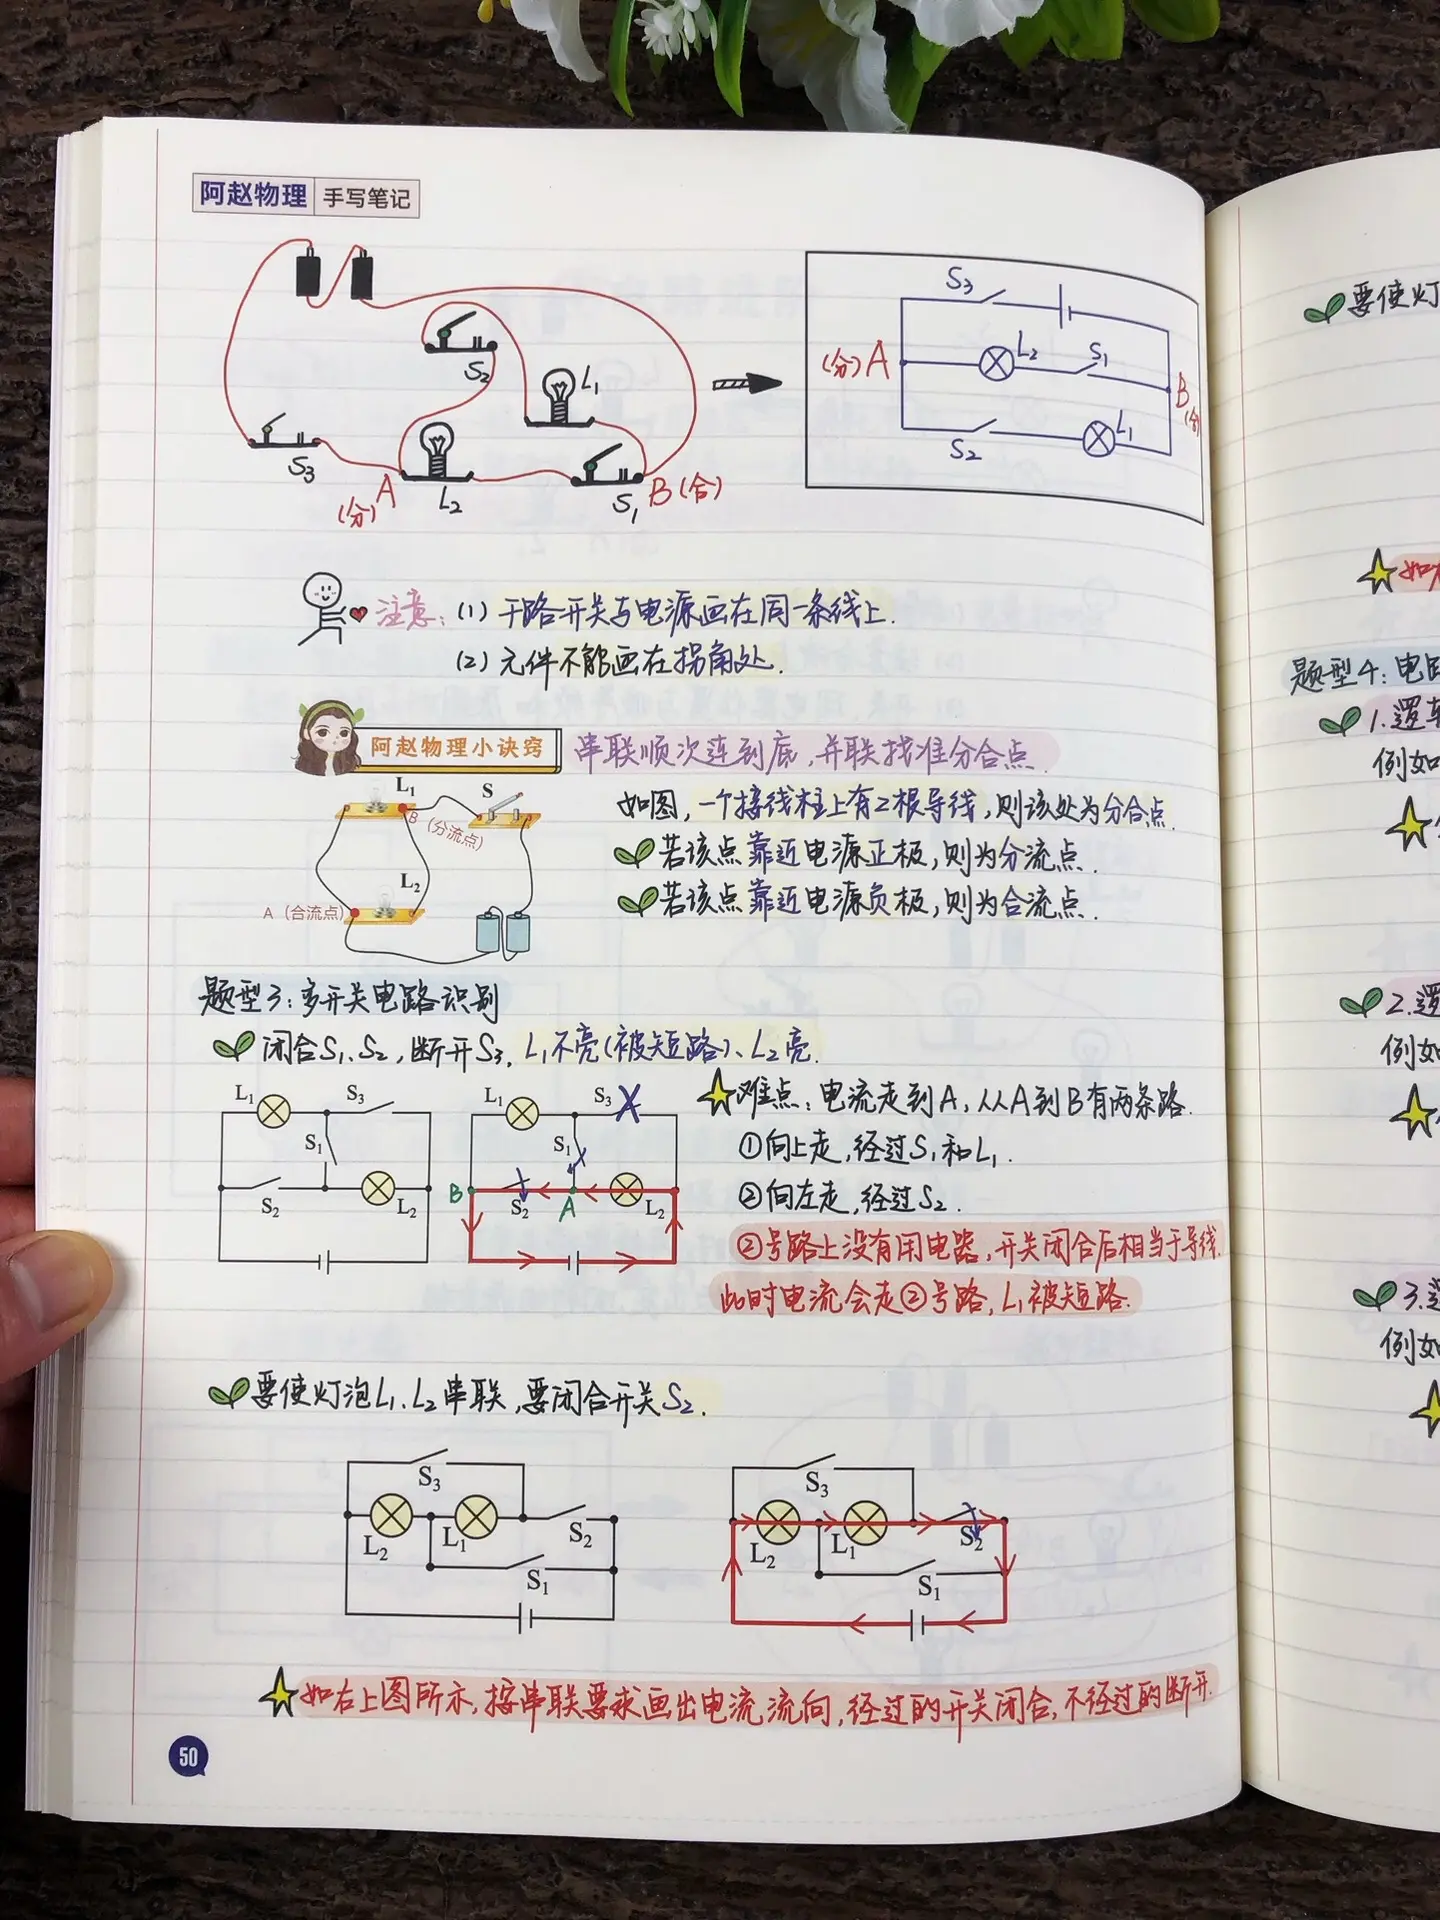 阿赵物理 手写笔记
S2
L1
S3
A
(分)
L2
S1
B(合)
S3
(分)A
L2
S1
B
(合)
S2
L1
注意：(1) 干路开关与电源画在同一条线上.
(2) 元件不能画在拐角处.
阿赵物理小诀窍 串联顺次连到底，并联找准分合点.
L1
S
B（分流点）
L2
A（合流点）
如图，一个接线柱上有2根导线，则该处为分合点.
若该点靠近电源正极，则为分流点.
若该点靠近电源负极，则为合流点.
题型3：多开关电路识别
闭合S1、S2，断开S3，L1不亮(被短路)、L2亮.
L1
S3
S1
S2
L2
L1
S3
S1
B
S2
A
L2
难点：电流走到A，从A到B有两条路.
①向上走，经过S1和L1.
②向左走，经过S2.
②号路上没有用电器，开关闭合后相当于导线.
此时电流会走②号路，L1被短路.
要使灯泡L1、L2串联，要闭合开关S2.
S3
L2
L1
S2
S1
S3
L2
L1
S2
S1
如右上图所示，按串联要求画出电流流向，经过的开关闭合，不经过的断开.
50
要使灯
题型4：电
1.逻
例如
2.逻
例如
3.逻
例如